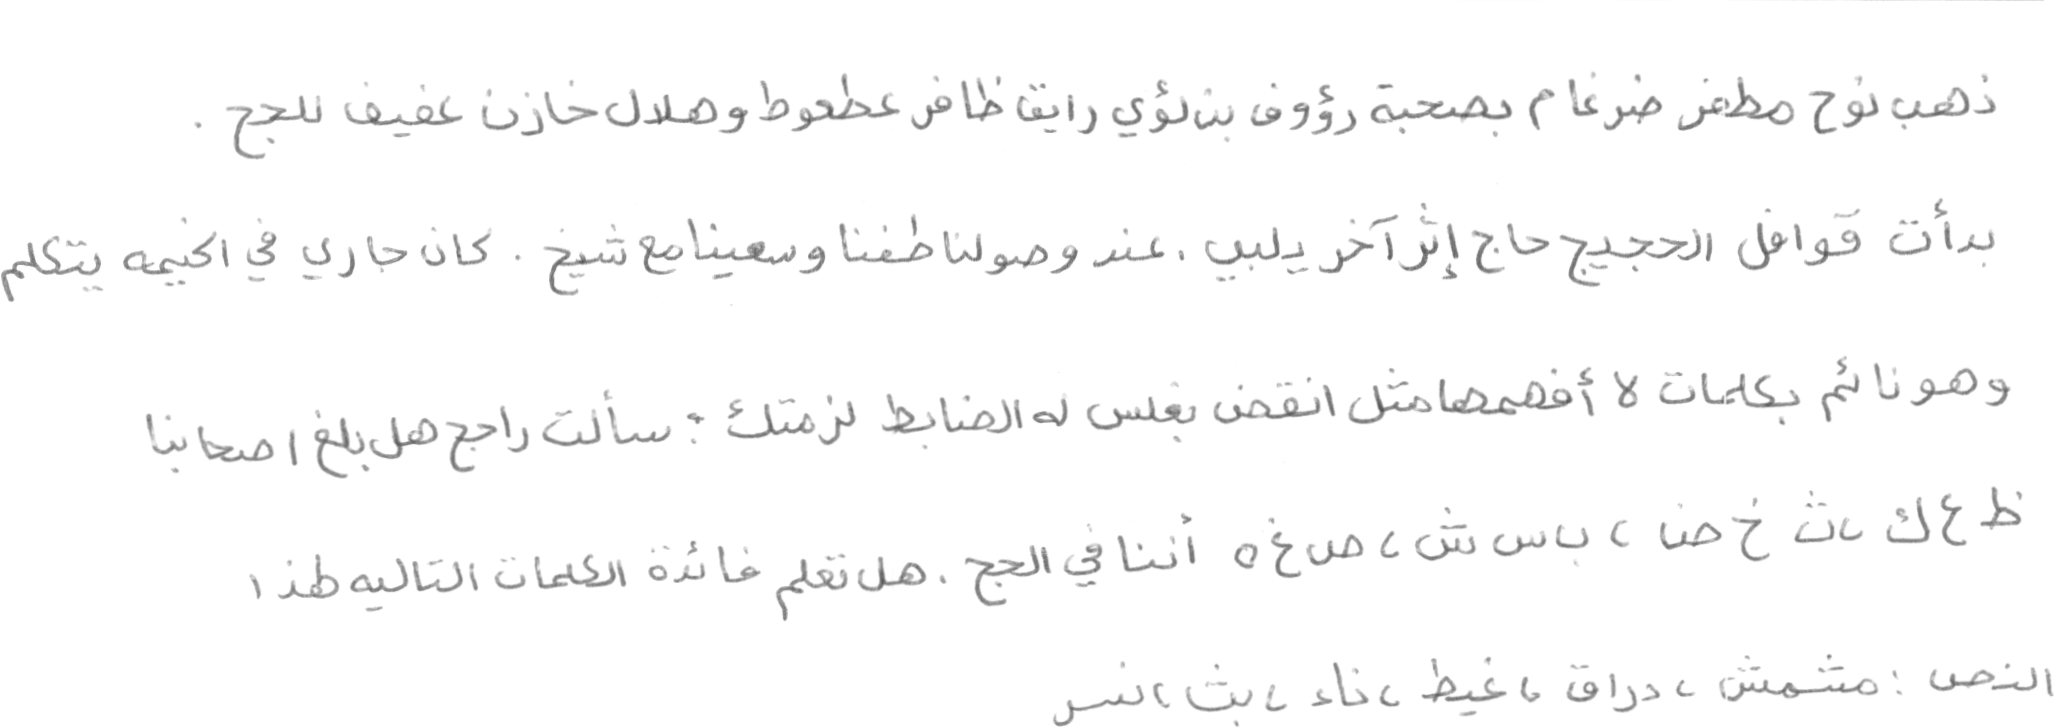 ذهب نوح مظفر ضرغام بصحبة رؤوف بن لؤي رايق ظافر عطعوط وهلال خازن عفيف للحج .
بدأت قوافل الحجيج حاج إثر آخر يلبي . عند وصولنا طفنا وسعينا مع شيخ . كان جاري في الخيمه يتكلم
وهو نائم بكلمات لا أفهمها مثل انقض بغلس له الضابط لزمتك ؛ سألت راجح هل بلغ اصحابنا
ظ ع ك ، ث خ ض ، ب س ش ، ص غ ه أننا في الحج . هل تعلم فائدة الكلمات التاليه لهذا
النص : مشمش ، دراق ، غيظ ، ناء ، بث ، نسر